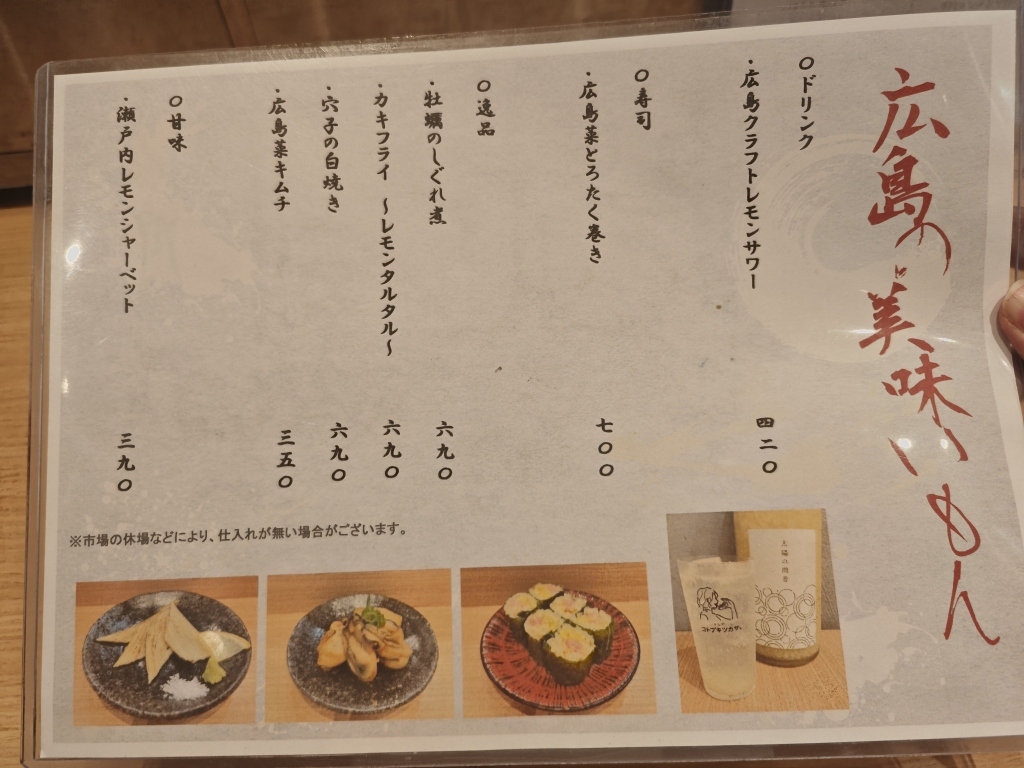 広島の美味いもん
○ドリンク
・広島クラフトレモンサワー 四二〇
○寿司
・広島菜とろたく巻き 七〇〇
○逸品
・牡蠣のしぐれ煮 六九〇
・カキフライ ～レモンタルタル～ 六九〇
・穴子の白焼き 六九〇
・広島菜キムチ 三五〇
○甘味
・瀬戸内レモンシャーベット 三九〇
※市場の休場などにより、仕入れが無い場合がございます。
コトブキツカサ